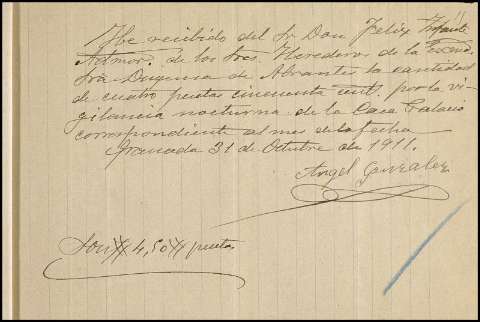 He recibido del Sr Don Felix Infante
Admor. de los Sres. Herederos de la Excma.
Sra Duquesa de Abrantes la cantidad
de cuatro pesetas cincuenta cent. por la vi-
gilancia nocturna de la Casa Palacio
correspondiente al mes de la fecha
Granada 31 de Octubre de 1911.
Angel Gonzalez
Son # 4,50 # pesetas